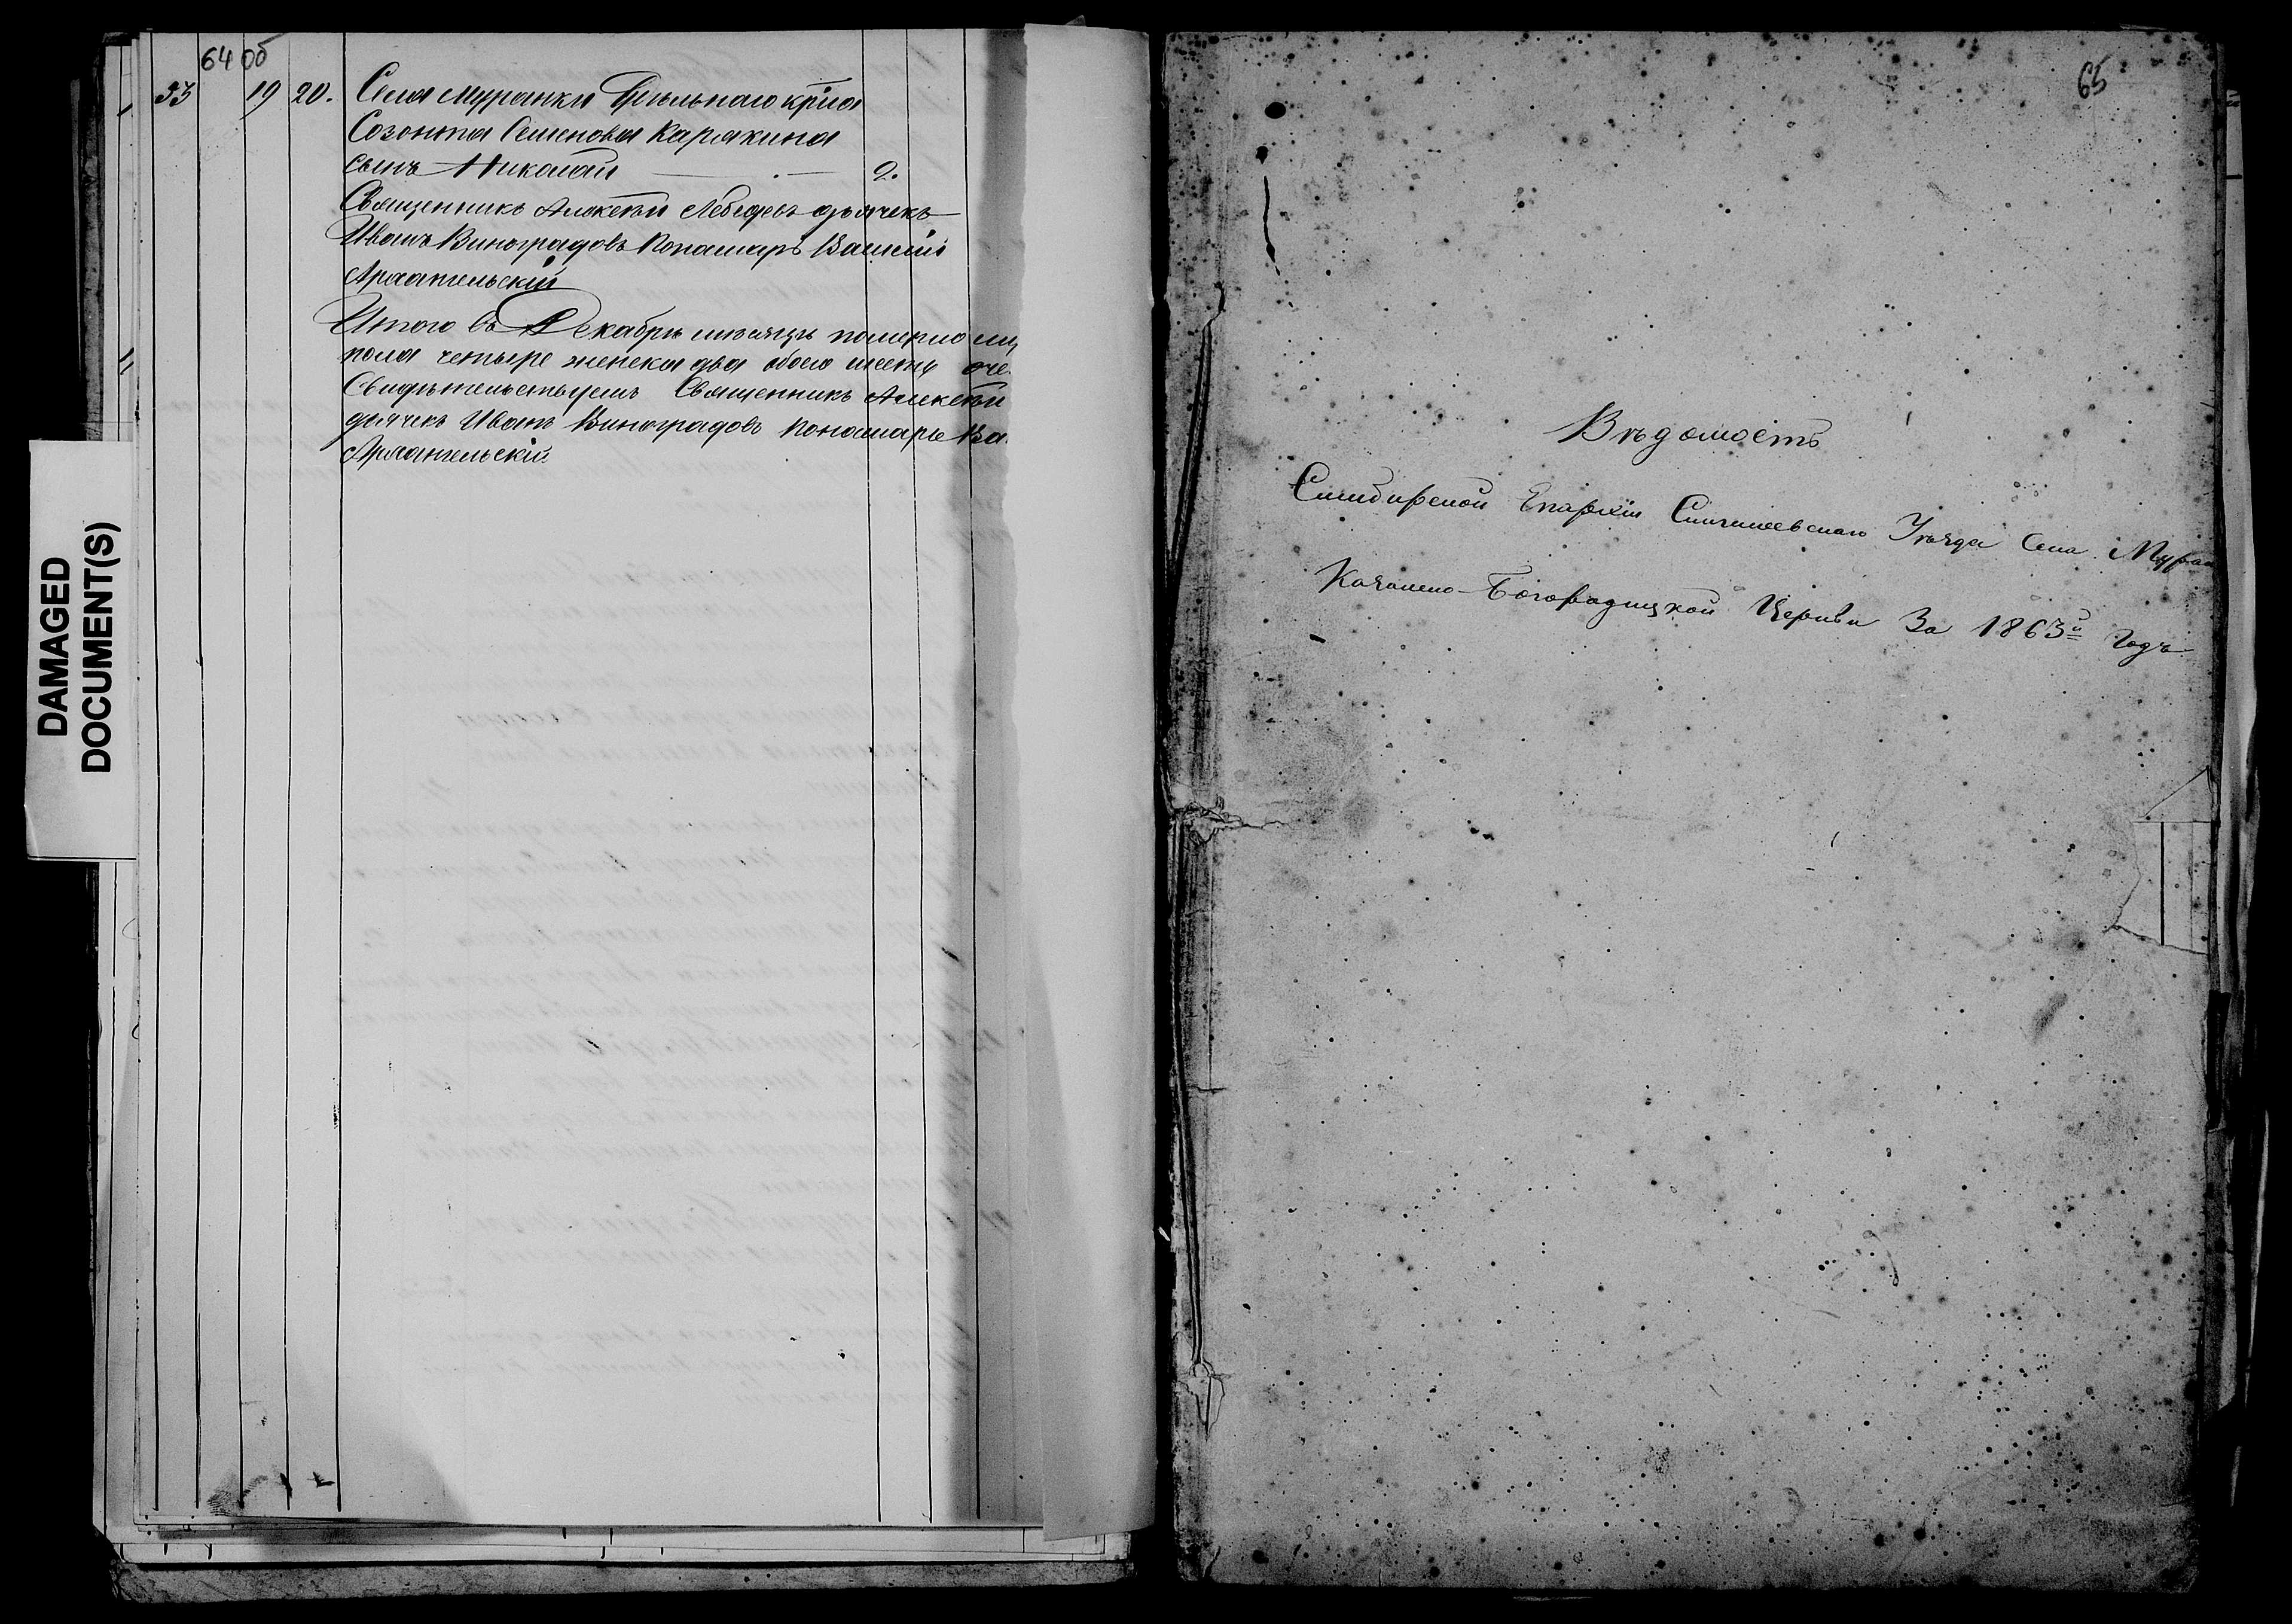 64 об
33 19 20. Села Муранки Удѣльнаго кр̃на
Созонта Семенова Карякина
сынъ Николай — . — 2.
Священникъ Алексѣй Лебедевъ дьячекъ
Иванъ Виноградовъ Пономарь Василій
Архангельскій
Итого въ Декабрѣ мѣсяцѣ померло му
пола четыре женска два обоего шесть
Свидѣтельствуемъ Священникъ Алексѣй
дьячекъ Иванъ Виноградовъ Пономарь Ва
Архангельскій
DAMAGED
DOCUMENT(S)
65
Вѣдомость
Симбирской Епархіи Сингилеевскаго Уѣзда Села Муран
Казанско-Богородицкой Церкви За 1863й Годъ